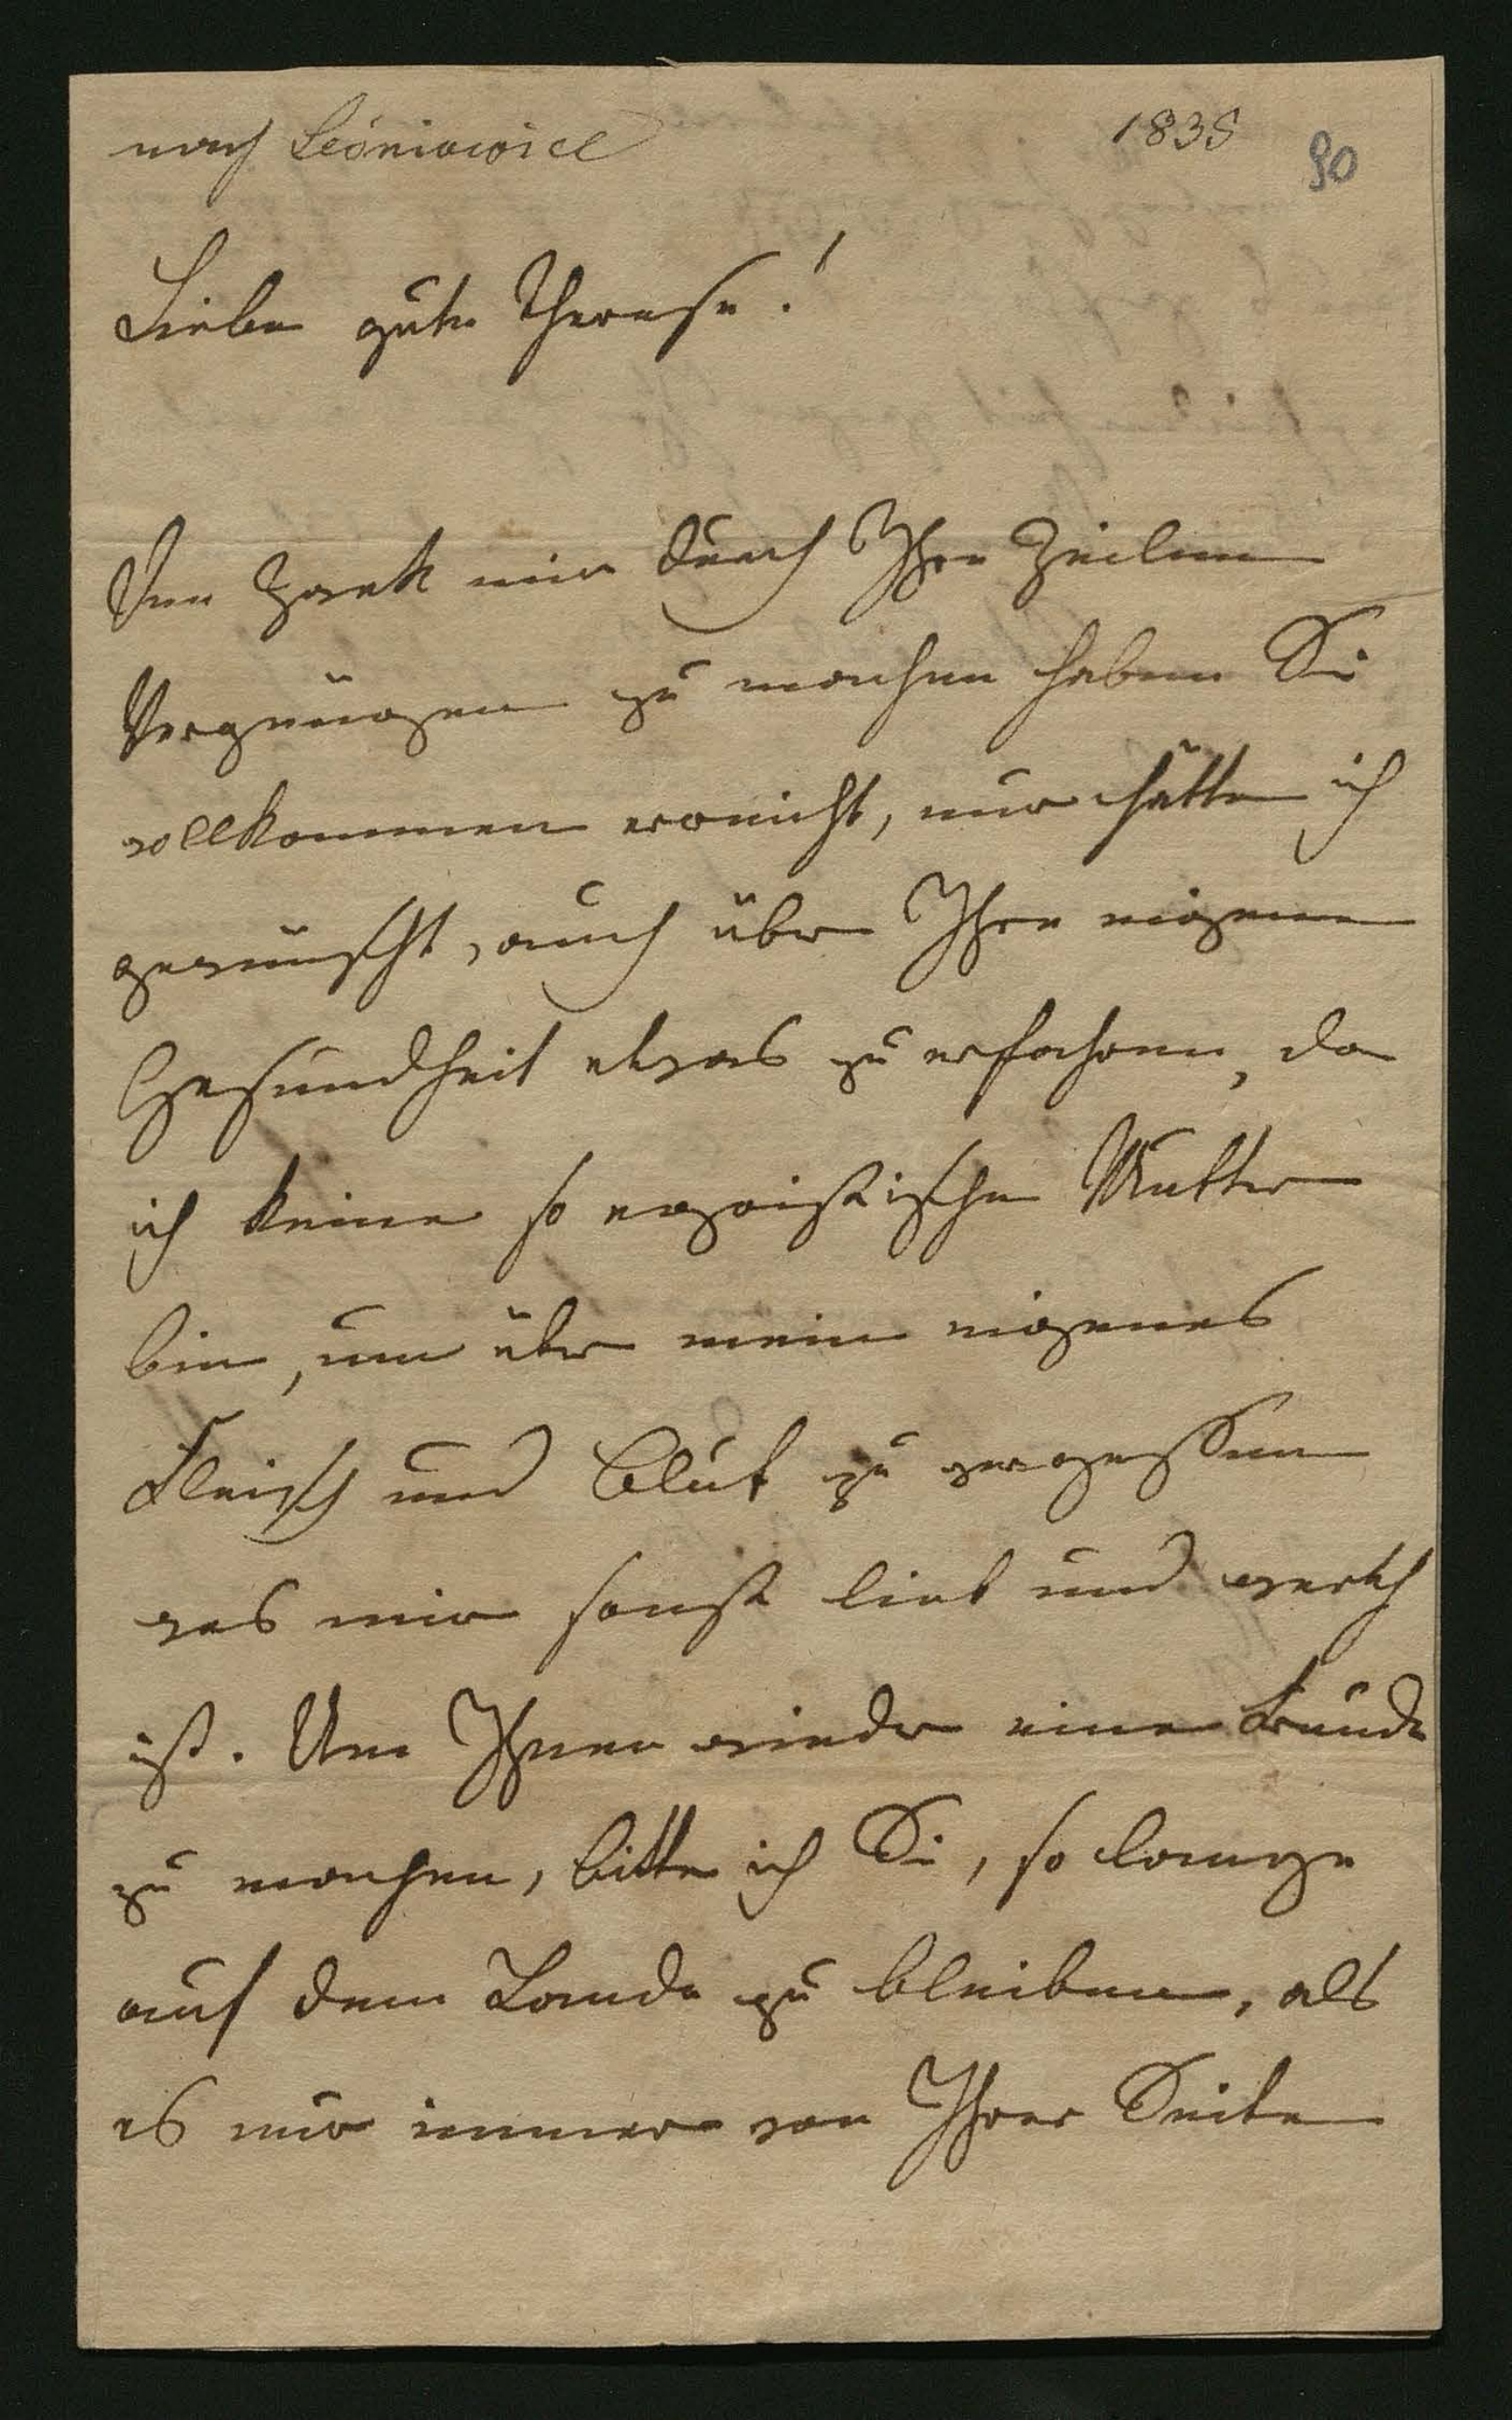 nach Leśniowice
1835
90
Liebe gute Therese!
Den Zweck mir durch Ihre Zeilen
Vergnügen zu machen haben Sie
vollkommen erreicht, nur hätte ich
gewünscht, auch über Ihre eigene
Gesundheit etwas zu erfahren, da
ich keine so egoistische Mutter
bin, um über mein eigenes
Fleisch und Blut zu vergessen
was mir sonst lieb und werth
ist. Um Ihnen wieder eine Freude
zu machen, bitte ich Sie, so lange
auf dem Lande zu bleiben, als
es nur immer von Ihrer Seite